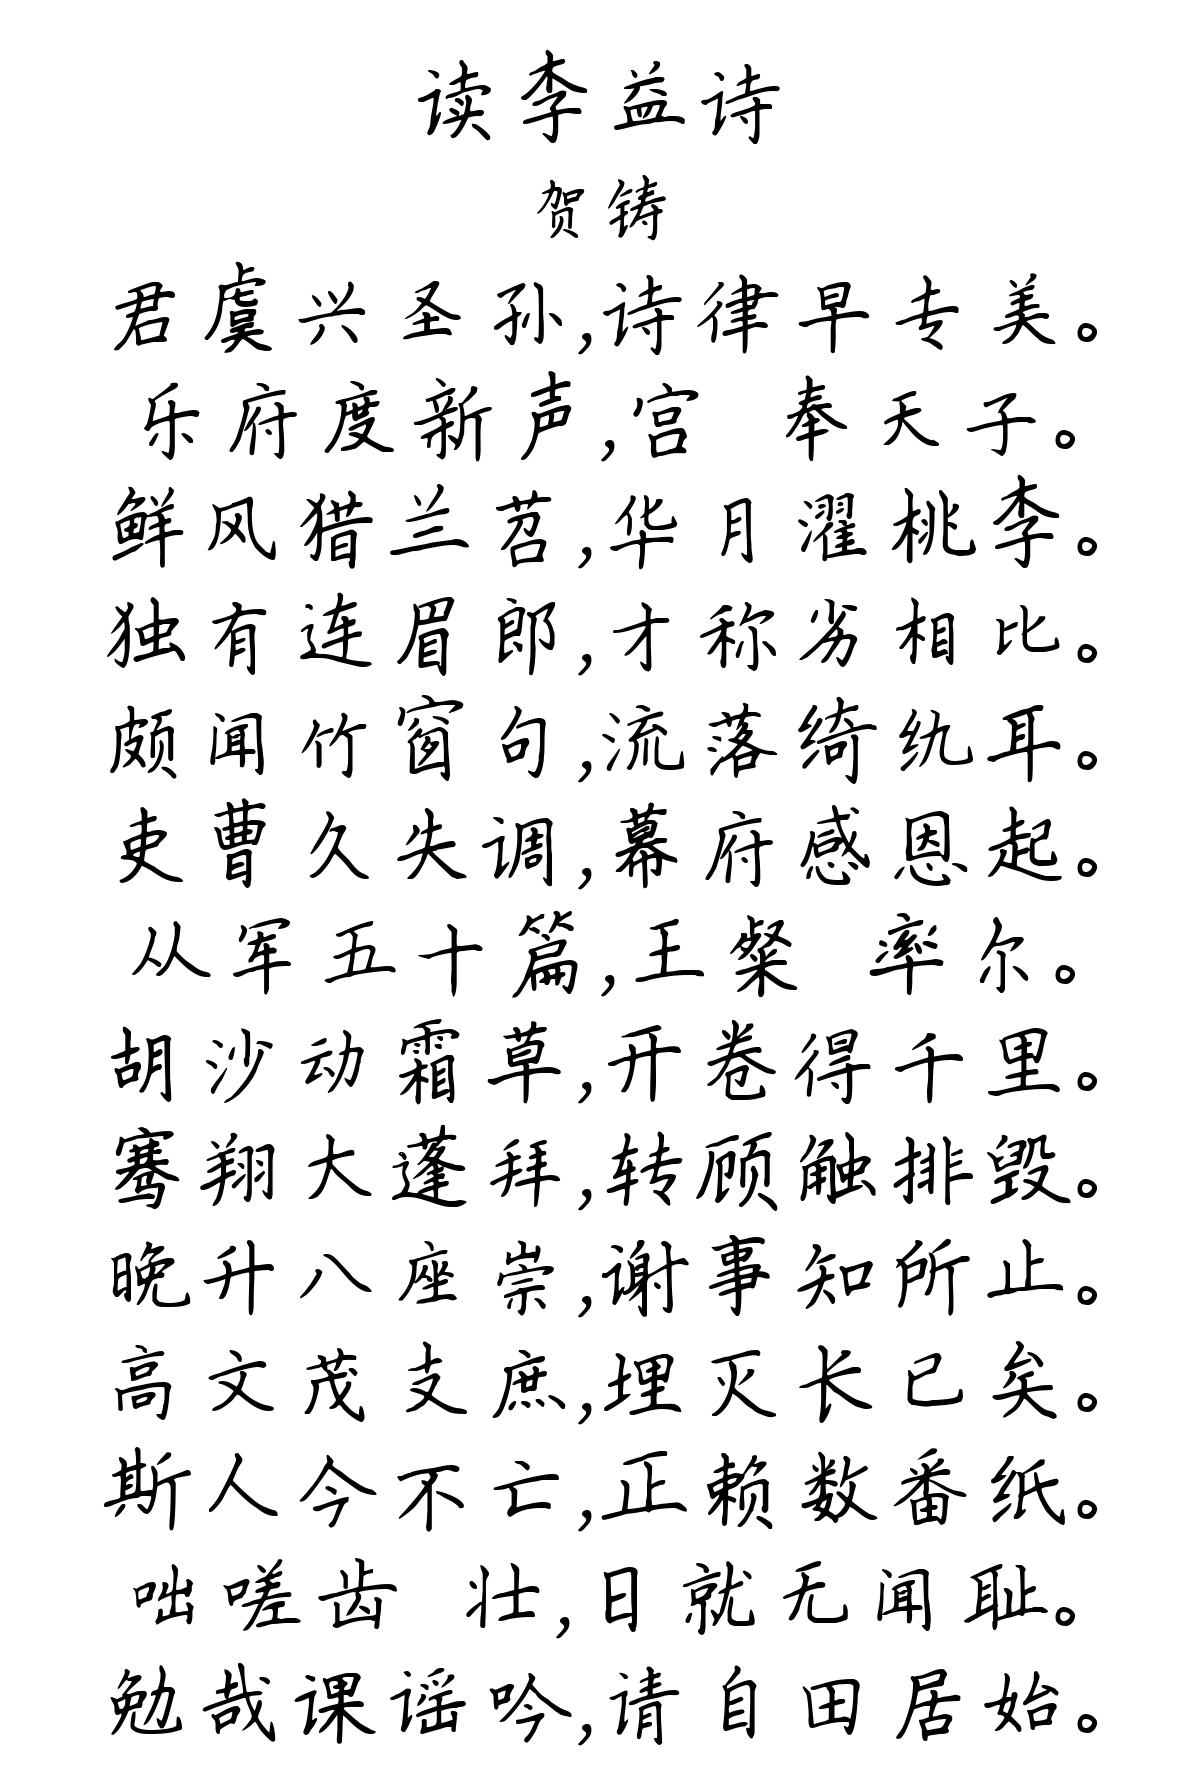 读李益诗
贺铸
君虞兴圣孙,诗律早专美。
乐府度新声,宫 奉天子。
鲜风猎兰苕,华月濯桃李。
独有连眉郎,才称劣相比。
颇闻竹窗句,流落绮纨耳。
吏曹久失调,幕府感恩起。
从军五十篇,王粲 率尔。
胡沙动霜草,开卷得千里。
骞翔大蓬拜,转顾触排毁。
晚升八座崇,谢事知所止。
高文茂支庶,埋灭长已矣。
斯人今不亡,正赖数番纸。
咄嗟齿 壮,日就无闻耻。
勉哉课谣吟,请自田居始。